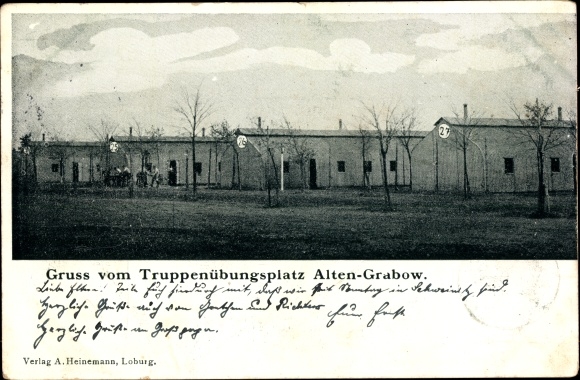 26
27
Gruss vom Truppenübungsplatz Alten-Grabow.
Liebe Eltern! Teile Euch hierdurch mit, daß wir seit Sonntag in Schweinitz sind.
Herzliche Grüße auch von Grethen und Richters Euer Ernst
Herzliche Grüße an Großpapa.
Verlag A. Heinemann, Loburg.